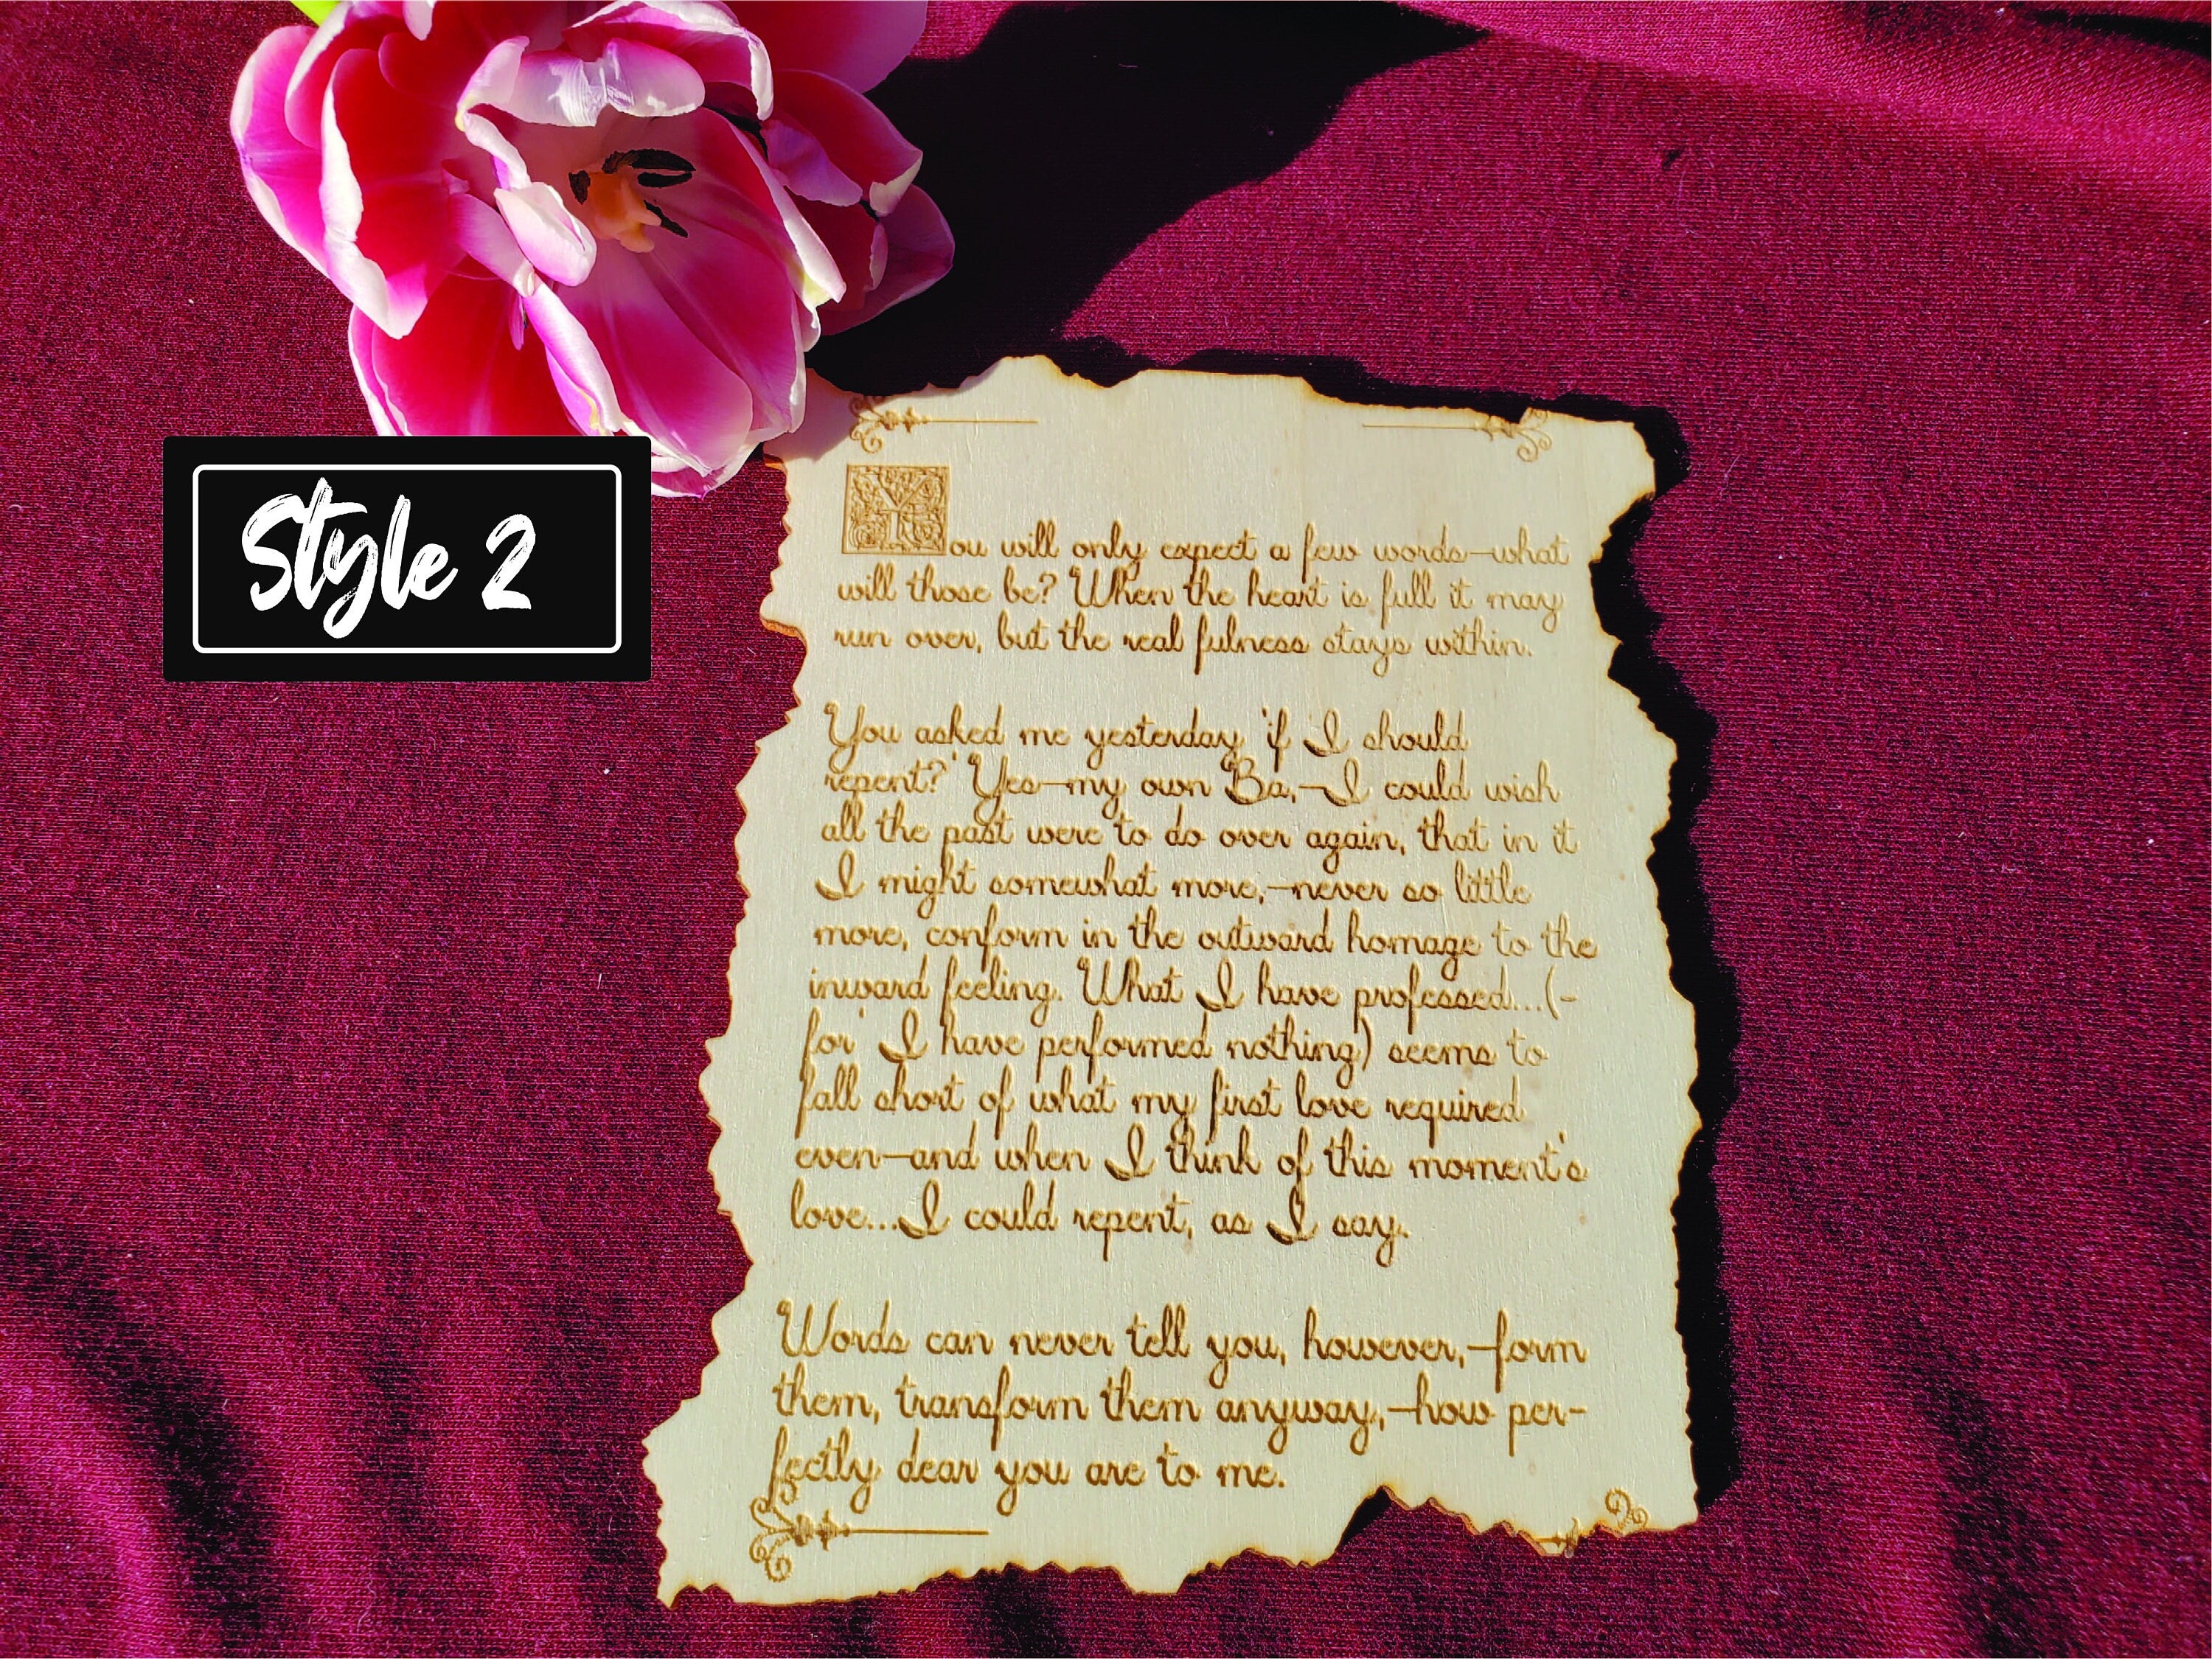 Style 2
You will only expect a few words—what
will those be? When the heart is full it may
run over, but the real fulness stays within.
You asked me yesterday 'if I should
repent?' Yes—my own Ba,—I could wish
all the past were to do over again, that in it
I might somewhat more,—never so little
more, conform in the outward homage to the
inward feeling. What I have professed...(-
for I have performed nothing) seems to
fall short of what my first love required
even—and when I think of this moment's
love...I could repent, as I say.
Words can never tell you, however,—form
them, transform them anyway,—how per-
fectly dear you are to me.